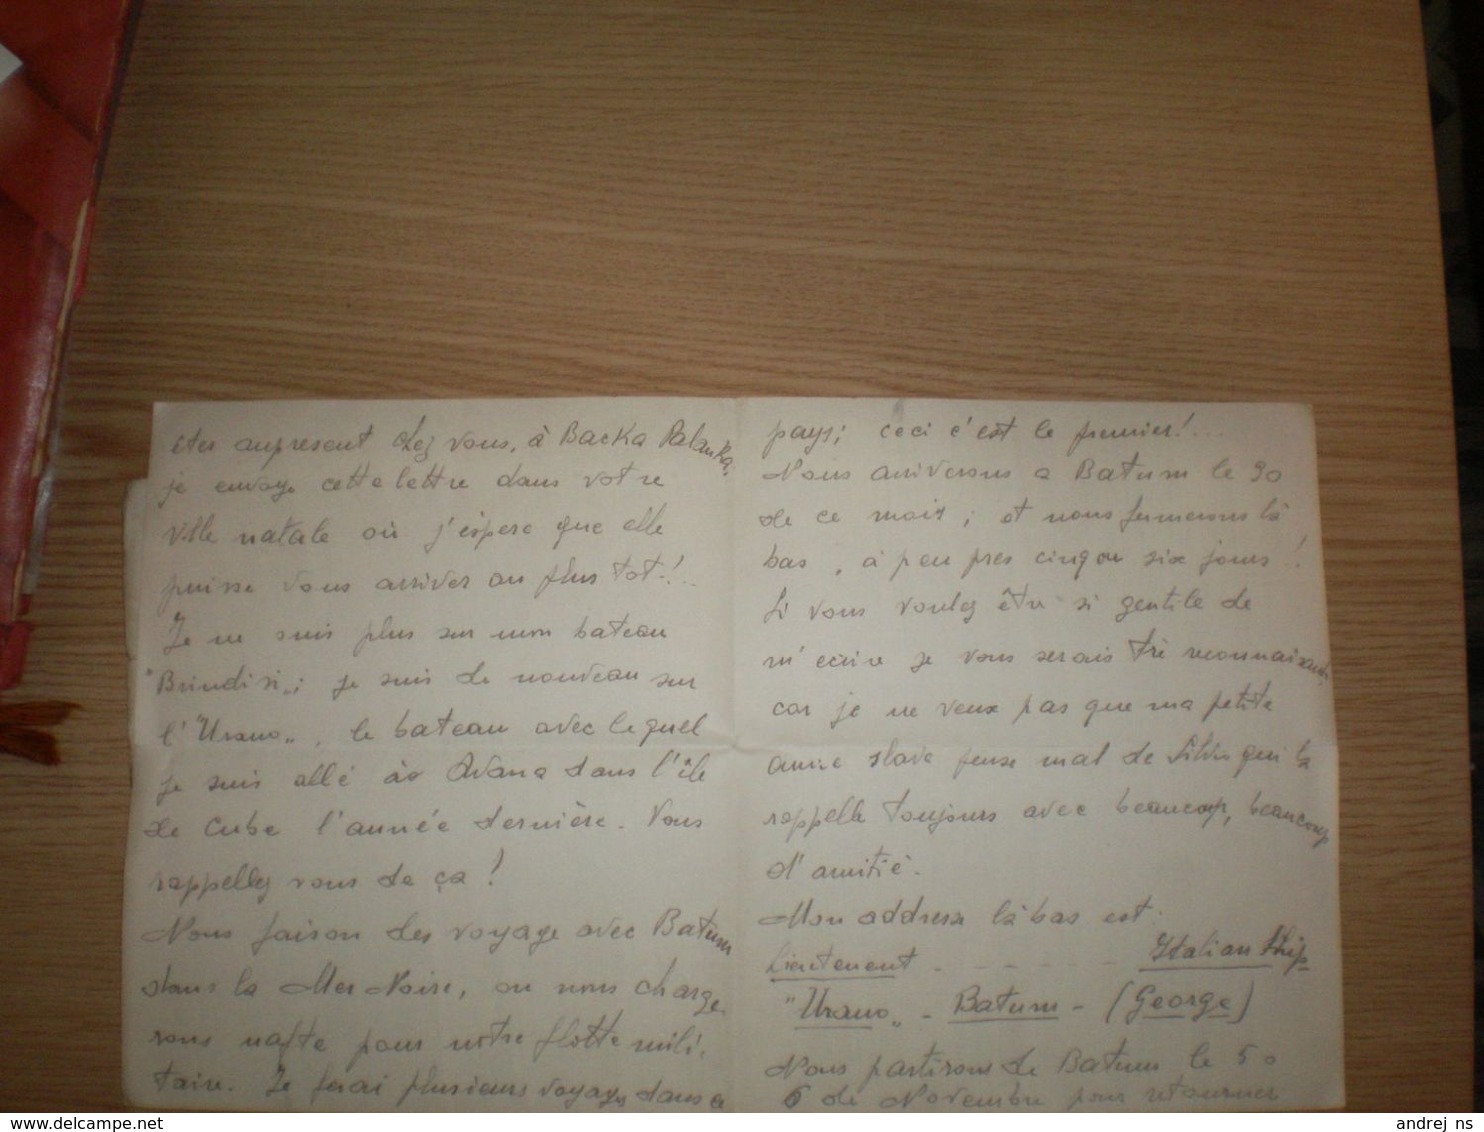 êtes aupresent chez vous, à Backa Palanka;
je envoye cette lettre dans votre
ville natale où j'espere que elle
puisse vous arriver au plus tot!..
Je ne suis plus sur mon bateau
"Brindisi„; je suis de nouveau sur
l'"Urano„, le bateau avec lequel
je suis allé à Avana dans l'île
de Cube l'année dernière. Vous
rappelley vous de ça!
Nous faison des voyage avec Batum
dans la Mer Noire, ou nous charge
rons nafte pour notre flotte mili-
taire. Je ferai plusieurs voyages dans ce
pays; ceci c'est le premier!...
Nous arriverons a Batum le 30
de ce mois; et nous fermerons là
bas, à peu pres cinq ou six jours!
Si vous voulez être si gentile de
m'ecrire je vous serais trè reconnaissant,
car je ne veux pas que ma petite
amie slave pense mal de Silvio qui la
rappelle toujours avec beaucoup, beaucoup
d'amitié.
Mon addresse là bas est:
Lieutenent - - - - - - Italian Ship
"Urano„ - Batum - (George)
Nous partirons de Batum le 5 o
6 de Novembre pour retourner
andrej ns